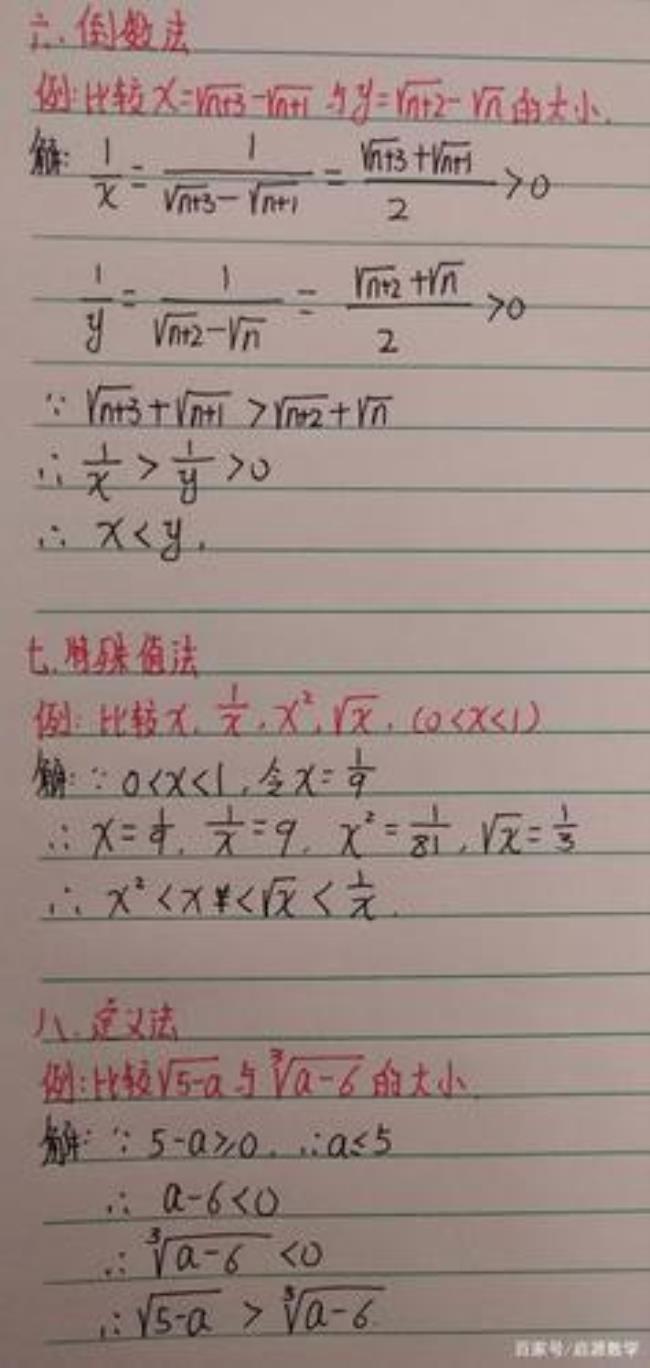 六.倒数法
例:比较x=√(n+3)-√(n+1) 与y=√(n+2)-√n的大小.
解: 1/x=1/(√(n+3)-√(n+1))=(√(n+3)+√(n+1))/2>0
1/y=1/(√(n+2)-√n)=(√(n+2)+√n)/2>0
∵ √(n+3)+√(n+1)>√(n+2)+√n
∴ 1/x>1/y>0
∴ x<y.
七.特殊值法
例:比较x, 1/x, x², √x. (0<x<1)
解:∵0<x<1,令x=1/9
∴x=1/9, 1/x=9, x²=1/81, √x=1/3
∴x²<x<√x<1/x.
八.定义法
例:比较√(5-a)与∛(a-6)的大小.
解:∵5-a≥0.∴a≤5
∴a-6<0
∴∛(a-6)<0
∴√(5-a)>∛(a-6)
百家号/启源数学